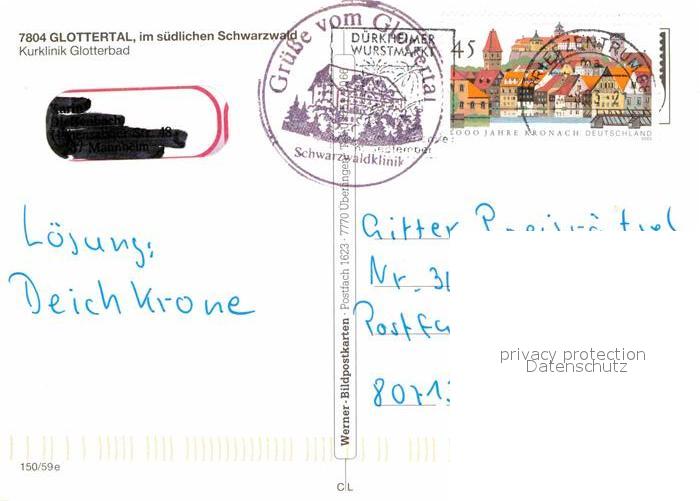 7804 GLOTTERTAL, im südlichen Schwarzwald
Kurklinik Glotterbad
Grüße vom Glottertal
Schwarzwaldklinik
DÜRKHEIMER
WURSTMARKT
September
45
BRIEFZENTRUM
1000 JAHRE KRONACH DEUTSCHLAND
Str. 48
Mannheim
Lösung:
Deichkrone
Gitter
Nr. 31
Postfa
8071
privacy protection
Datenschutz
Werner-Bildpostkarten · Postfach 1623 · 7770 Überlingen
150/59e
C L